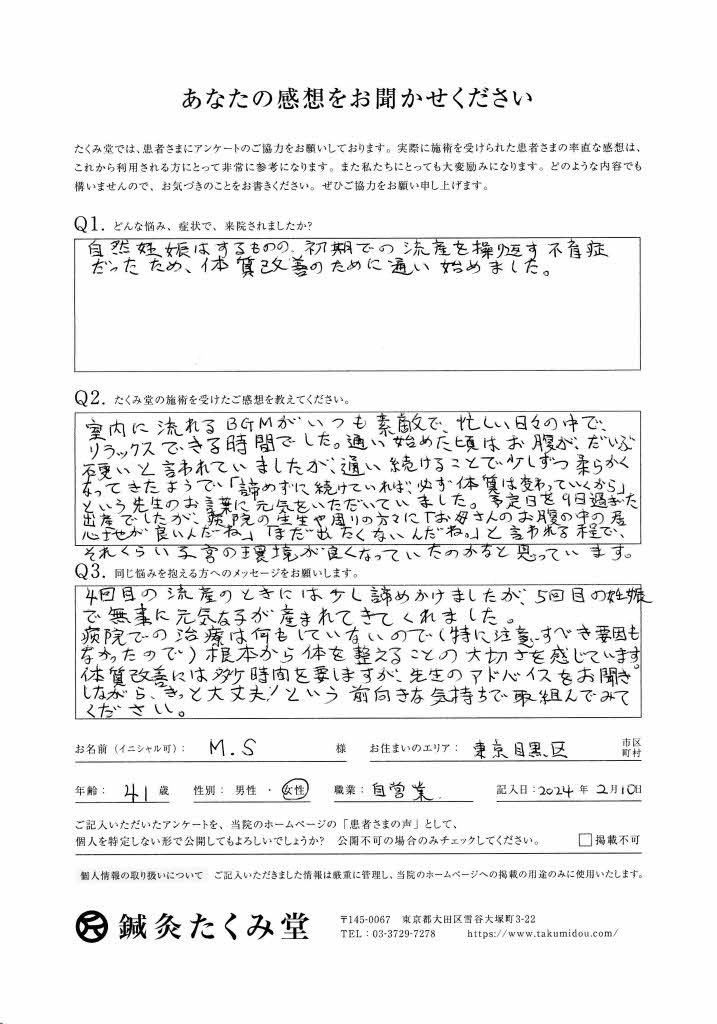 あなたの感想をお聞かせください
たくみ堂では、患者さまにアンケートのご協力をお願いしております。実際に施術を受けられた患者さまの率直な感想は、
これから利用される方にとって非常に参考になります。また私たちにとっても大変励みになります。どのような内容でも
構いませんので、お気づきのことをお書きください。ぜひご協力をお願い申し上げます。
Q1. どんな悩み、症状で、来院されましたか?
自然妊娠はするものの、初期での流産を繰り返す不育症
だったため、体質改善のために通い始めました。
Q2. たくみ堂の施術を受けたご感想を教えてください。
室内に流れるBGMがいつも素敵で、忙しい日々の中で、
リラックスできる時間でした。通い始めた頃はお腹が、だいぶ
硬いと言われていましたが、通い続けることで少しずつ柔らかく
なってきたようで「諦めずに続けていれば、必ず体質は変わっていくから」
という先生のお言葉に元気をいただいていました。予定日を9日過ぎた
出産でしたが、病院の先生や周りの方々に「お母さんのお腹の中の居
心地が良いんだね」「まだ出たくないんだね。」と言われる程で、
それくらい子宮の環境が良くなっていたのかなと思っています。
Q3. 同じ悩みを抱える方へのメッセージをお願いします。
4回目の流産のときには少し諦めかけましたが、5回目の妊娠
で無事に元気な子が産まれてきてくれました。
病院での治療は何もしていないので(特に注意すべき要因も
なかったので)根本から体を整えることの大切さを感じています。
体質改善には多少時間を要しますが、先生のアドバイスをお聞き
しながら、きっと大丈夫!という前向きな気持ちで取組んでみて
ください。
お名前(イニシャル可): M.S 様 お住まいのエリア: 東京目黒区 市区町村
年齢: 41 歳 性別: 男性 ・ 女性 職業: 自営業 記入日: 2024 年 2月10日
ご記入いただいたアンケートを、当院のホームページの「患者さまの声」として、
個人を特定しない形で公開してもよろしいでしょうか? 公開不可の場合のみチェックしてください。 □掲載不可
個人情報の取り扱いについて ご記入いただきました情報は厳重に管理し、当院のホームページへの掲載の用途のみに使用いたします。
鍼灸たくみ堂
〒145-0067 東京都大田区雪谷大塚町3-22
TEL:03-3729-7278 https://www.takumidou.com/